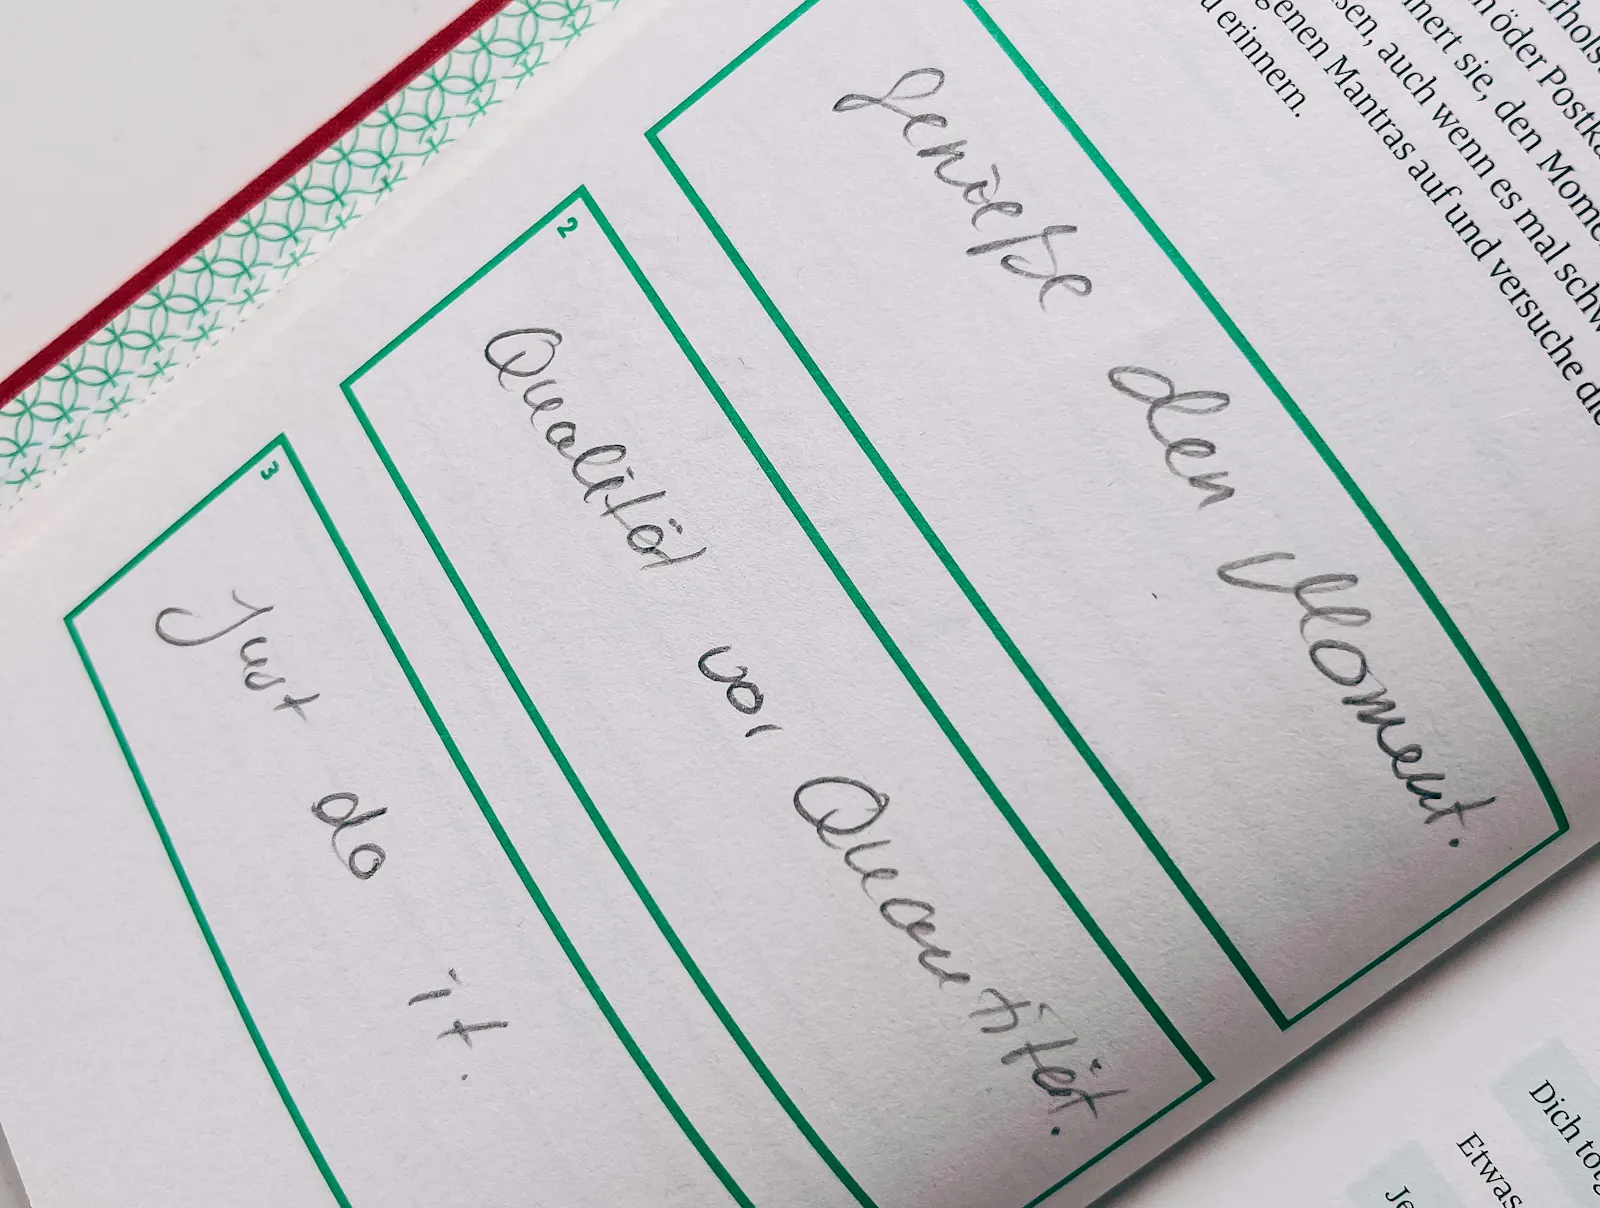 erhols
sen, auch wenn es mal schw
nert sie, den Mome
n öder Postka
genen Mantras auf und versuche die
erinnern.
genieße den Moment.
2
Qualität vor Quantität.
3
Just do it.
Dich
Etwas
Je